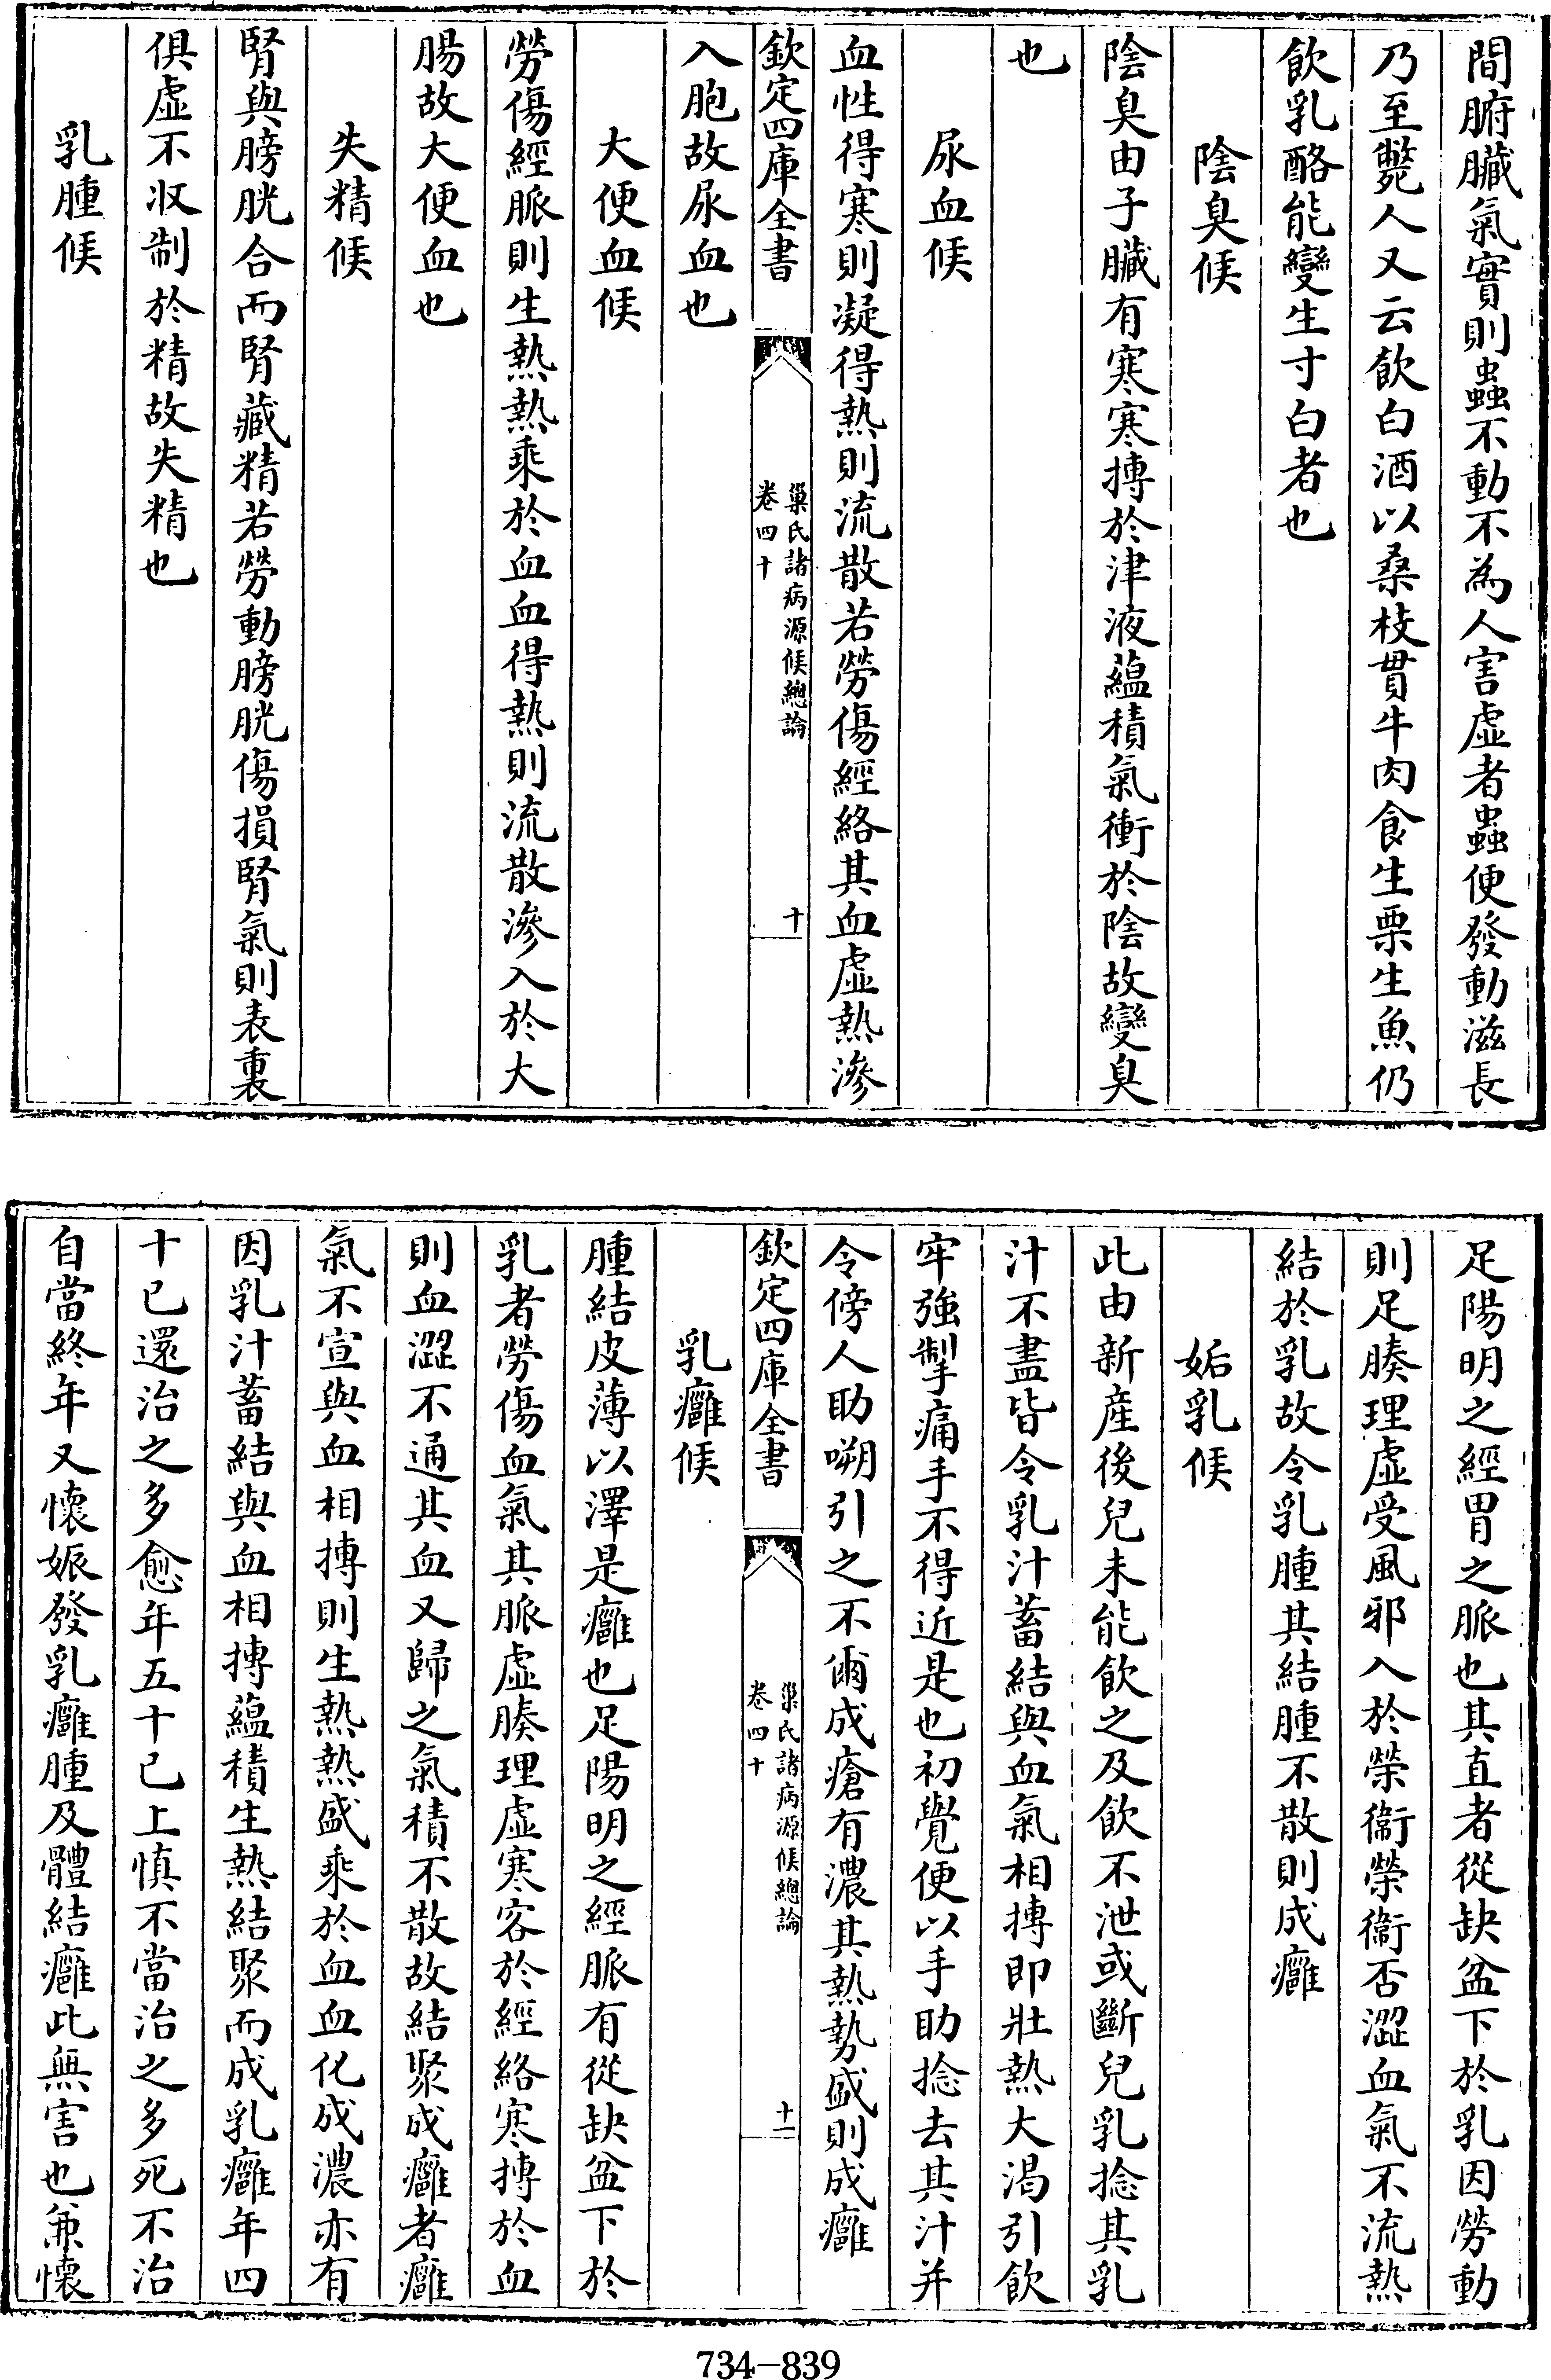 間腑臟氣實則蟲不動不為人害虛者蟲便發動滋長
乃至斃人又云飲白酒以桑枝貫牛肉食生栗生魚仍
飲乳酪能變生寸白者也
陰臭候
陰臭由子臟有寒寒搏於津液蘊積氣衝於陰故變臭
也
尿血候
血性得寒則凝得熱則流散若勞傷經絡其血虛熱滲
欽定四庫全書
巢氏諸病源候總論
卷四十
十
入胞故尿血也
大便血候
勞傷經脈則生熱熱乘於血血得熱則流散滲入於大
腸故大便血也
失精候
腎與膀胱合而腎藏精若勞動膀胱傷損腎氣則表裏
俱虛不收制於精故失精也
乳腫候
足陽明之經胃之脈也其直者從缺盆下於乳因勞動
則足腠理虛受風邪入於榮衞榮衞否澀血氣不流熱
結於乳故令乳腫其結腫不散則成癰
妬乳候
此由新産後兒未能飲之及飲不泄或斷兒乳捻其乳
汁不盡皆令乳汁蓄結與血氣相搏即壯熱大渴引飲
牢強掣痛手不得近是也初覺便以手助捻去其汁并
令傍人助嗍引之不爾成瘡有濃其熱勢盛則成癰
欽定四庫全書
巢氏諸病源候總論
卷四十
十一
乳癰候
腫結皮薄以澤是癰也足陽明之經脈有從缺盆下於
乳者勞傷血氣其脈虛腠理虛寒客於經絡寒搏於血
則血澀不通其血又歸之氣積不散故結聚成癰者癰
氣不宣與血相搏則生熱熱盛乘於血血化成濃亦有
因乳汁蓄結與血相搏蘊積生熱結聚而成乳癰年四
十已還治之多愈年五十已上慎不當治之多死不治
自當終年又懷娠發乳癰腫及體結癰此無害也兼懷
734-839